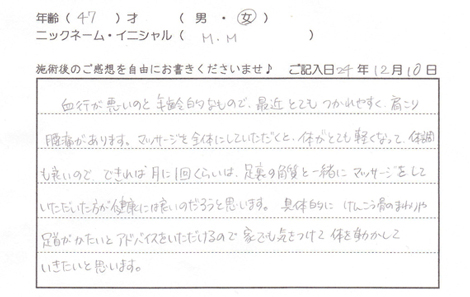 年齢( 47 )才 ( 男 ・ 女 )
ニックネーム・イニシャル( M.M )
施術後のご感想を自由にお書きくださいませ♪ ご記入日24年12月18日
血行が悪いのと年齢的なもので、最近とてもつかれやすく、肩こり
腰痛があります。マッサージを全体にしていただくと、体がとても軽くなって、体調
も良いので、できれば月に1回くらいは、足裏の角質と一緒にマッサージをして
いただいた方が健康には良いのだろうと思います。具体的に けんこう骨のまわりや
足首がかたいとアドバイスをいただけるので家でも気をつけて体を動かして
いきたいと思います。